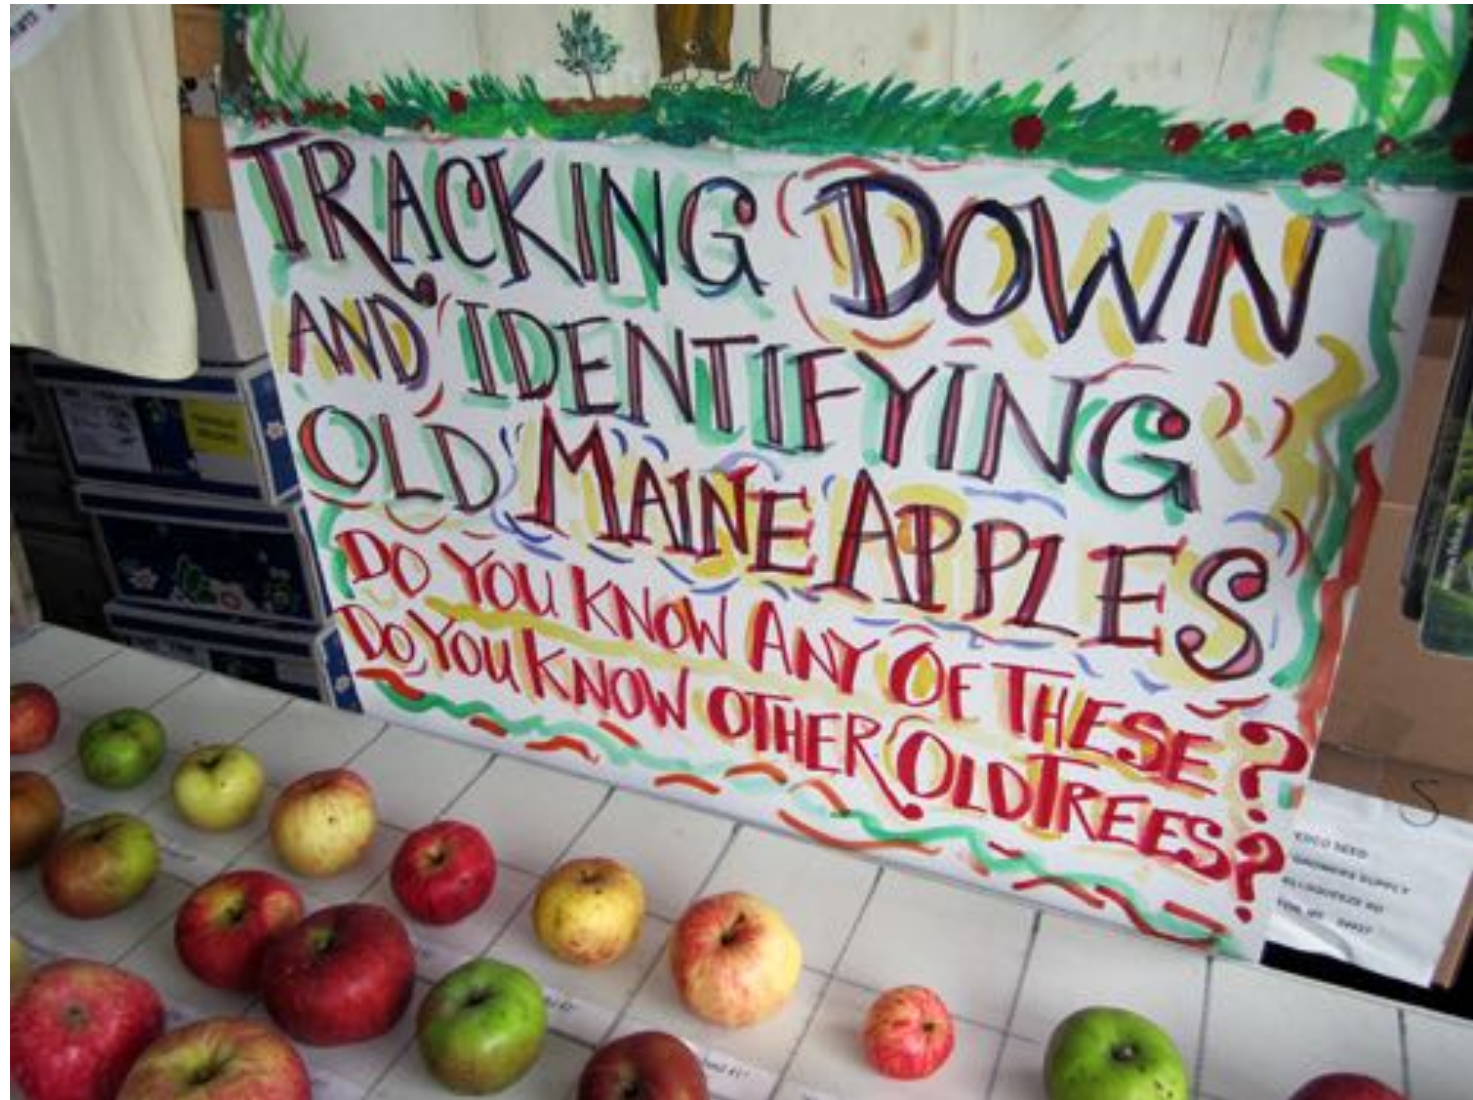 TRACKING DOWN
AND IDENTIFYING
OLD MAINE APPLES
DO YOU KNOW ANY OF THESE?
DO YOU KNOW OTHER OLD TREES?
S
SEED
GROWERS SUPPLY